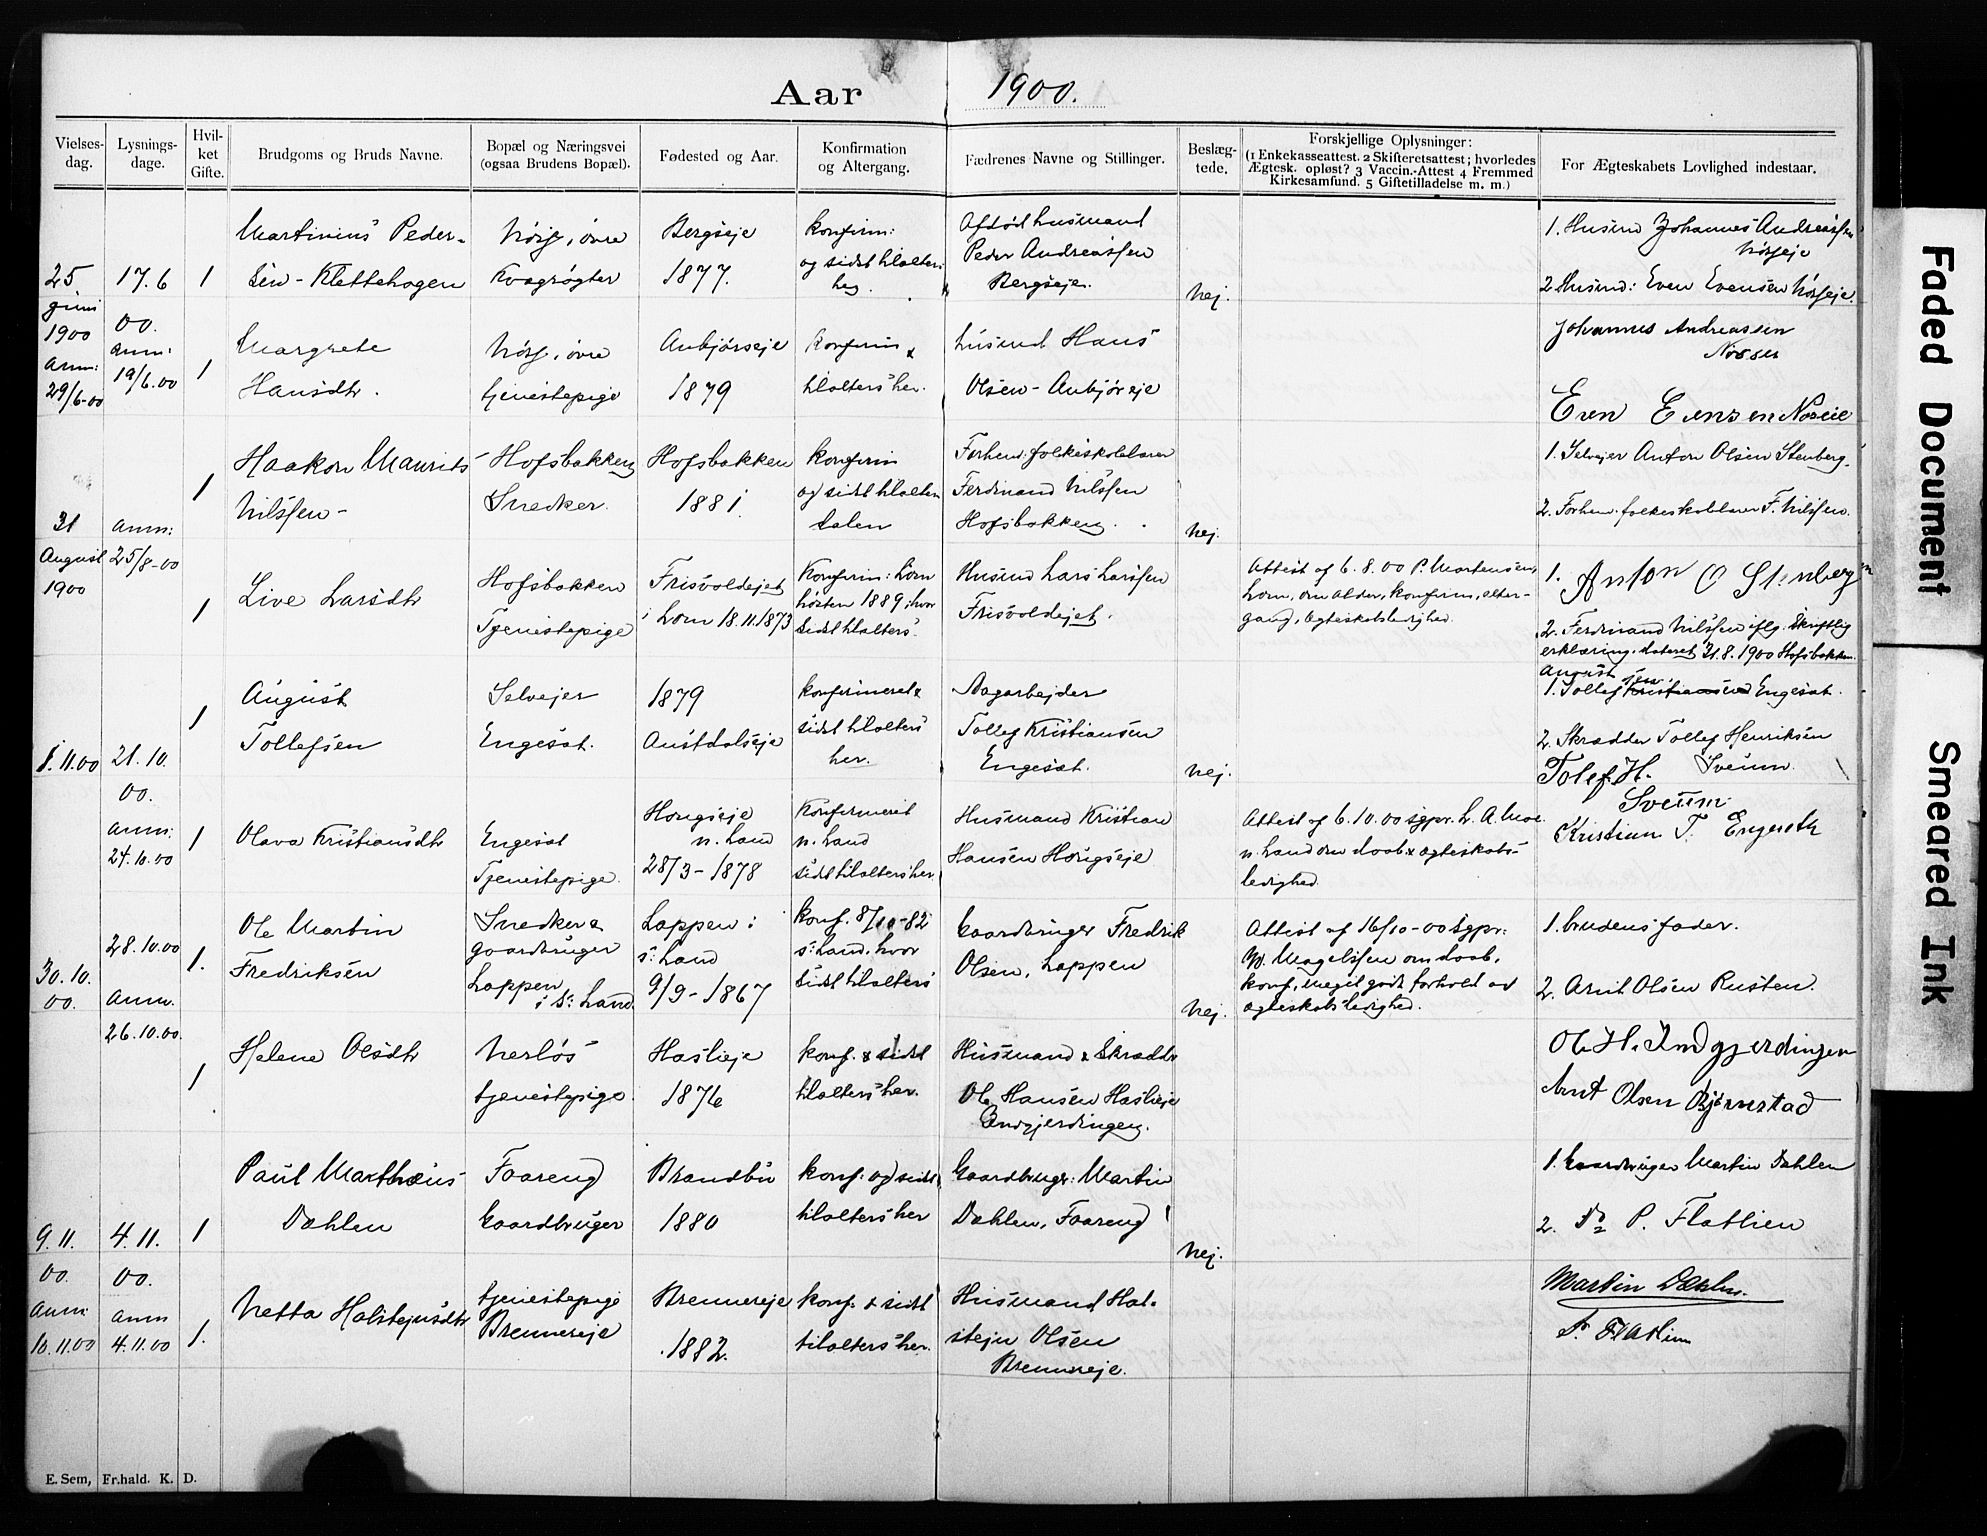 Aar 1900.
Vielses-
dag.
Lysnings-
dage.
Hvil-
ket
Gifte.
Brudgoms og Bruds Navne.
Bopæl og Næringsvei
(ogsaa Brudens Bopæl).
Fødested og Aar.
Konfirmation
og Altergang.
Fædrenes Navne og Stillinger.
Beslæg-
tede.
Forskjellige Oplysninger:
(1 Enkekasseattest. 2 Skifteretsattest; hvorledes
Ægtesk. opløst? 3 Vaccin.-Attest 4 Fremmed
Kirkesamfund. 5 Giftetilladelse m. m.)
For Ægteskabets Lovlighed indestaar.
25
juni
1900
anm:
29/6-00
17.6
00.
anm:
19/6.00
1
Martinius Peder-
sen - Klettehagen
øvre
Kvægrøgter
Bergseje
1877.
konfirm:
og sidst tilalters
her.
Afdød husmand
Peder Andreassen
Bergseje.
Nej.
1. Husmd Johannes Andreassen
2. Husmd: Even Evensen
Johannes Andreassen
1
Margrete
Hansdtr.
øvre
tjenestepige
Aubjørseje
1879
konfirm &
tilalters her.
husmd Hans
Olsen - Aubjørseje
Even Evensen
31
August
1900
anm:
25/8-00
1
Haakon Maurits
Nilssen -
Hofsbakken
Snedker.
Hofsbakken
1881.
konfirm
og sidst tilalters
Forhen. folkeskolelærer
Ferdinand Nilssen
Hofsbakken.
Nej.
1. Selvejer Anton Olsen Stenberg.
2. Forhen. folkeskolelærer F. Nilssen.
1
Live Larsdtr
Hofsbakken
Tjenestepige
Frisvoldejet
i Lom 18.11.1873
Konfirm: Lom
høsten 1889, hvor
sidst tilalters.
Husmd Lars Larssen
Frisvoldejet.
Attest af 6.8.00 P. Mortensen,
Lom, om alder, konfirm, alter-
gang, ægteskabsledighed.
1. Anton O Stenberg
2. Ferdinand Nilssen iflg. skriftlig
erklæring, dateret 31.8.1900 Hofsbakken.
1.11.00
21.10.
00.
anm:
24.10.00
1
August
Tollefsen
Selvejer
Engesæt.
1879
Austdalseje
konfirmeret &
sidst tilalters
her.
Tollef Kristiansen
Engesæt.
Nej.
August
1. Tollef Kristiansen Engesæt.
2. Skrædder Tollef Henriksen
Sveum.
Tolef. H.
Sveum.
1
Olava Kristiansdtr
Engesæt
Tjenestepige.
Hongseje
n. Land
28/3 - 1878
Konfirmeret
n. Land
sidst tilalters her.
Husmand Kristian
Hansen Hongseje
Attest af 6.10.00 sgpr. L. A. Moe
n. Land om daab & ægteskabs-
ledighed.
Kristian T. Engeseth
30.10.
00.
28.10.00
anm.
26.10.00.
1.
Ole Martin
Fredriksen
Snedker &
gaardbruger
Lappen
i s: Land.
Lappen i
s: Land
9/9 - 1867
konf. 8/10-82
s: Land, hvor
sidst tilalters
Gaardbruger Fredrik
Olsen, Lappen
Nej.
Attest af 16/10-00 sgpr.
Magelssen om daab,
konf, meget godt forhold og
ægteskabsledighed.
1. brudens fader.
2. Arnt Olsen Rusten.
1
Helene Olsdtr
Nerløs
tjenestepige.
Haslieje
1876
konf. & sidst
tilalters her.
Husmand & Skrædder
Ole Hansen Haslieje
Endgjerdingen.
Ole H. Indgjerdingen
Arnt Olsen Bjørnstad
9.11.
00.
anm:
10.11.00
4.11.
00.
anm
4.11.00
1
Paul Marthæus
Dæhlen
Faareng
Gaardbruger
Brandbu
1880
konf. og sidst
tilalters her
Gaardbruger: Martin
Dæhlen, Faareng
Nej.
1. Gaardbruger Martin Dæhlen
2. Do P. Flatlien
1.
Netta Halstejnsdtr
tjenestepige
Brennereje
Brennereje
1882.
konf. & sidst
tilalters her.
Husmand Hal-
stejn Olsen
Brennereje.
Martin Dæhlen.
P. Flatlien
E. Sem, Fr.hald. K. D.
Faded Document
Smeared Ink